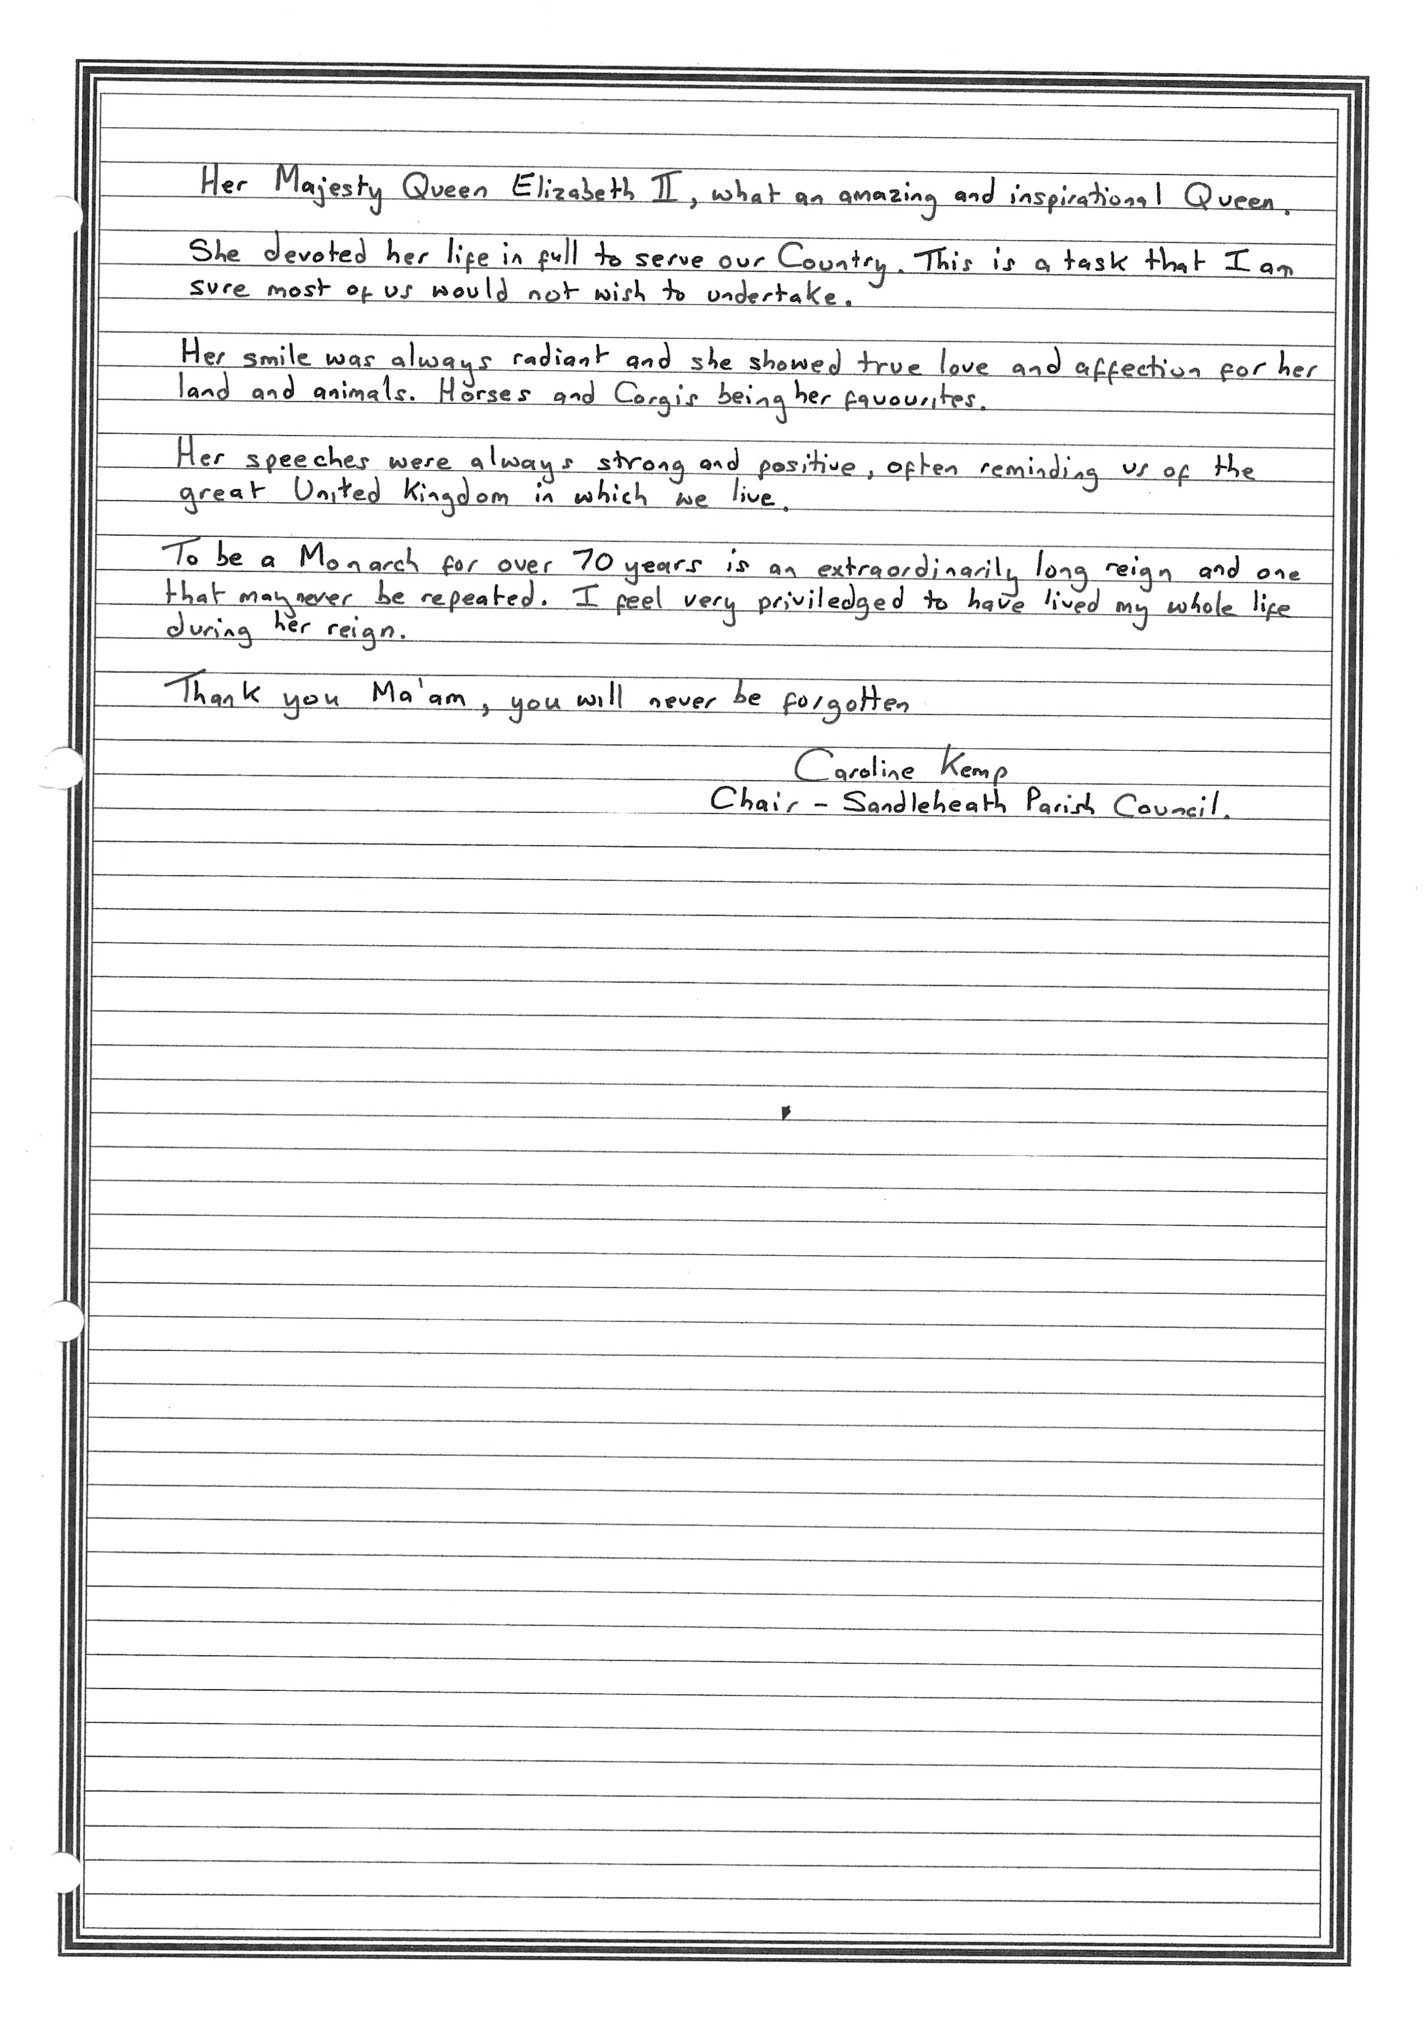 Her Majesty Queen Elizabeth II, what an amazing and inspirational Queen.
She devoted her life in full to serve our Country. This is a task that I am
sure most of us would not wish to undertake.
Her smile was always radiant and she showed true love and affection for her
land and animals. Horses and Corgis being her favourites.
Her speeches were always strong and positive, often reminding us of the
great United Kingdom in which we live.
To be a Monarch for over 70 years is an extraordinarily long reign and one
that may never be repeated. I feel very priviledged to have lived my whole life
during her reign.
Thank you Ma'am, you will never be forgotten
Caroline Kemp
Chair - Sandleheath Parish Council.